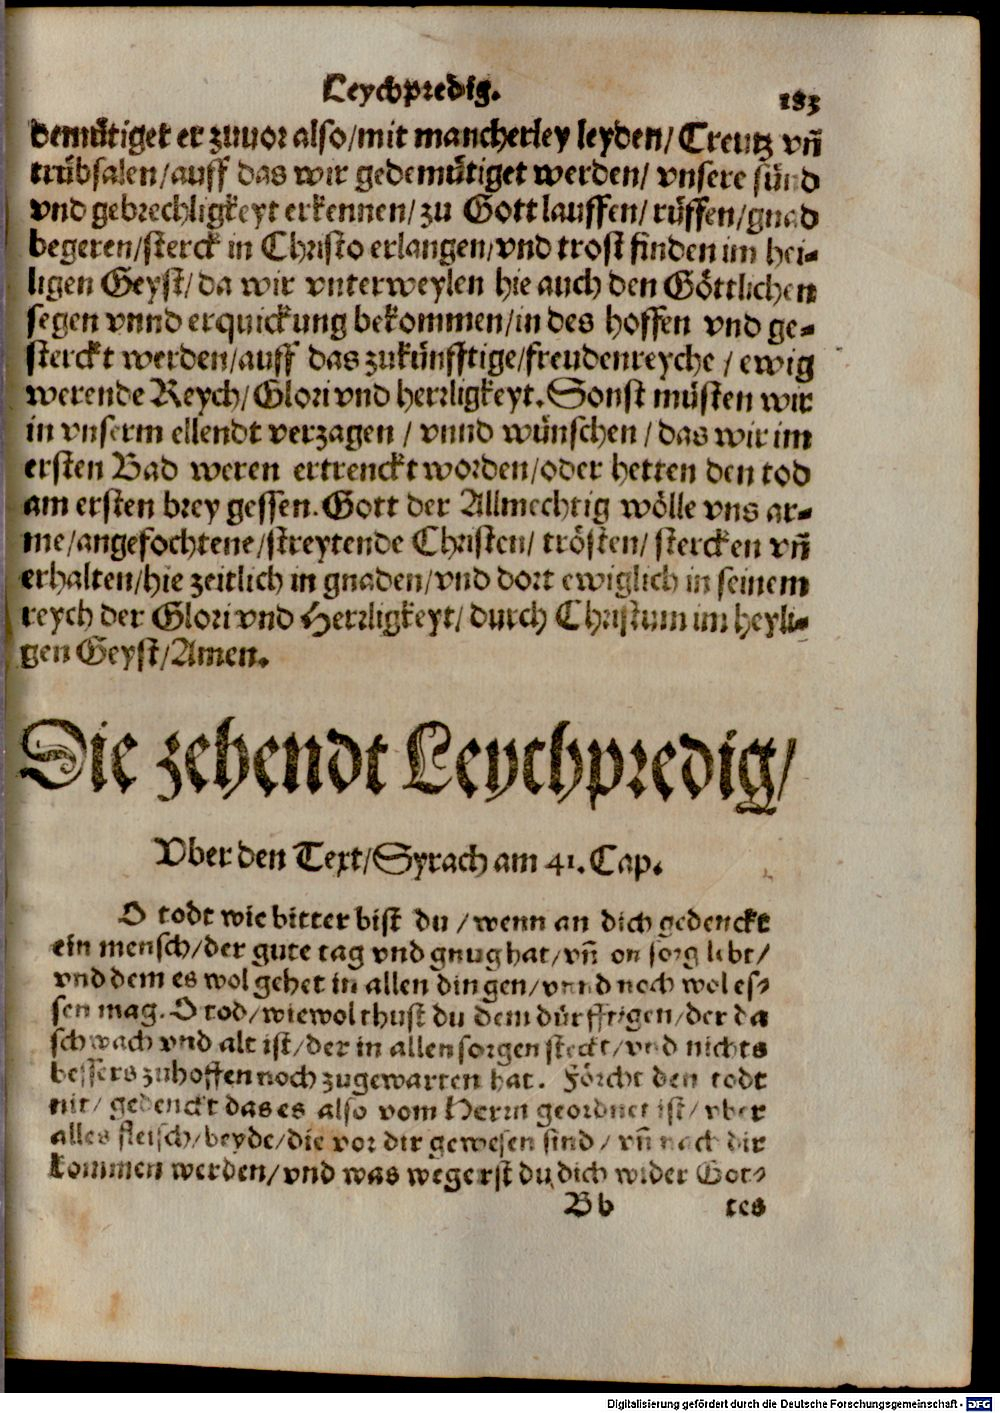 Leychpredig. 183
demütiget er zuuor also/mit mancherley leyden/Creutz vñ
trübsalen/auff das wir gedemütiget werden/vnsere sünd
vnd gebrechligkeyt erkennen/zu Gott lauffen/rüffen/gnad
begeren/sterck in Christo erlangen/vnd trost finden im hei-
ligen Geyst/da wir vnterweylen hie auch den Göttlichen
segen vnnd erquickung bekommen/in des hoffen vnd ge-
sterckt werden/auff das zukünfftige/freudenreyche/ewig
werende Reych/Glori vnd herrligkeyt. Sonst müsten wir
in vnserm ellendt verzagen/vnnd wünschen/das wir im
ersten Bad weren ertrenckt worden/oder hetten den tod
am ersten brey gessen. Gott der Allmechtig wölle vns ar-
me/angefochtene/streytende Christen/trösten/stercken vñ
erhalten/hie zeitlich in gnaden/vnd dort ewiglich in seinem
reych der Glori vnd Herrligkeyt/durch Christum im heyli-
gen Geyst/Amen.
Die zehendt Leychpredig/
Vber den Text/Syrach am 41. Cap.
O todt wie bitter bist du/wenn an dich gedenckt
ein mensch/der gute tag vnd gnug hat/vñ on sorg lebt/
vnd dem es wol gehet in allen dingen/vnnd noch wol es-
sen mag. O tod/wie wol thust du dem dürfftigen/der da
schwach vnd alt ist/der in allen sorgen steckt/vnd nichts
bessers zuhoffen noch zugewarten hat. Förcht den todt
nit/gedenckt das es also vom Herrn geordnet ist/vber
alles fleisch/beyde/die vor dir gewesen sind/vñ nach dir
kommen werden/vnd was wegerst du dich wider Got-
Bb tes
Digitalisierung gefördert durch die Deutsche Forschungsgemeinschaft - DFG